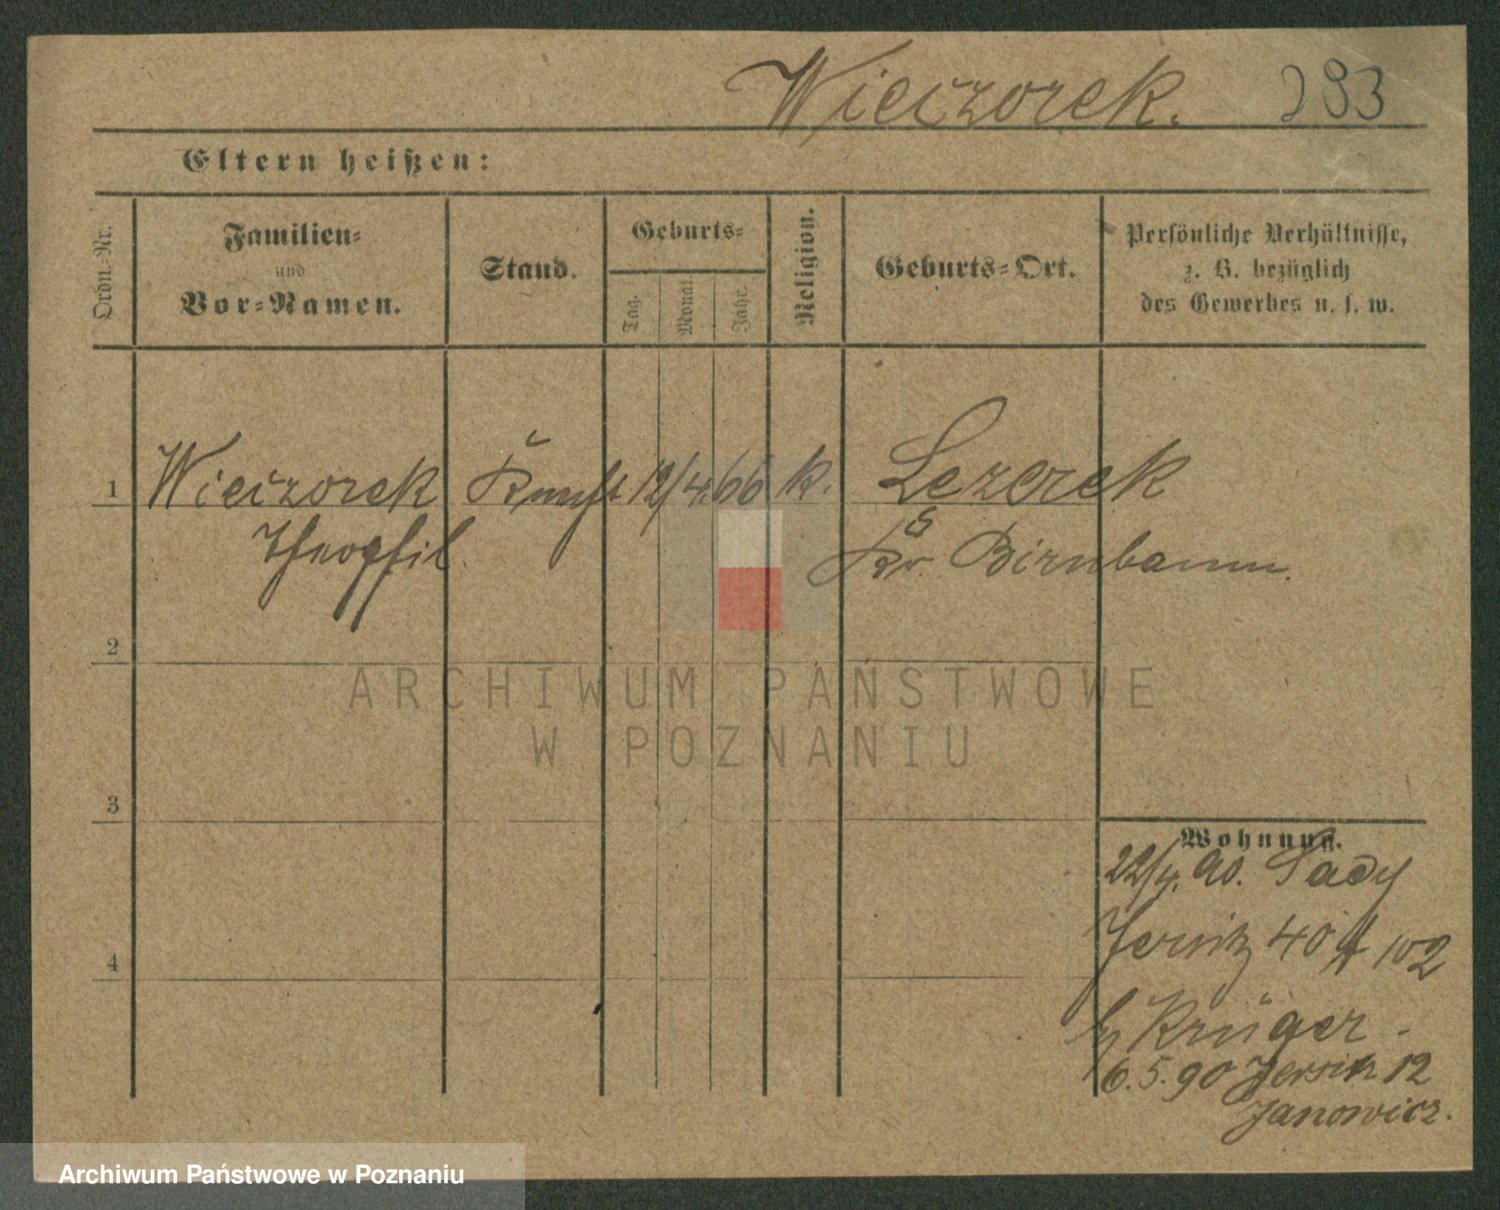 Wieczorek. 293
Eltern heißen:
Ordn.-Nr.
Familien-
und
Vor-Namen.
Stand.
Geburts-
Tag.
Monat
Jahr.
Religion.
Geburts-Ort.
Persönliche Verhältnisse,
z. B. bezüglich
des Gewerbes u. s. w.
1 Wieczorek Knecht 12/4.66 k. Lezerek
Theophil. Kr. Birnbaum.
2
ARCHIWUM PAŃSTWOWE
W POZNANIU
3
Wohnung.
22/4. 90. Sady
Jersitz 40 102
Krüger
4
6.5.90 Jersitz 12
Janowicz.
Archiwum Państwowe w Poznaniu